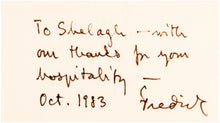 To Shelagh – with
our thanks for your
hospitality –
Oct. 1983 Fredrick